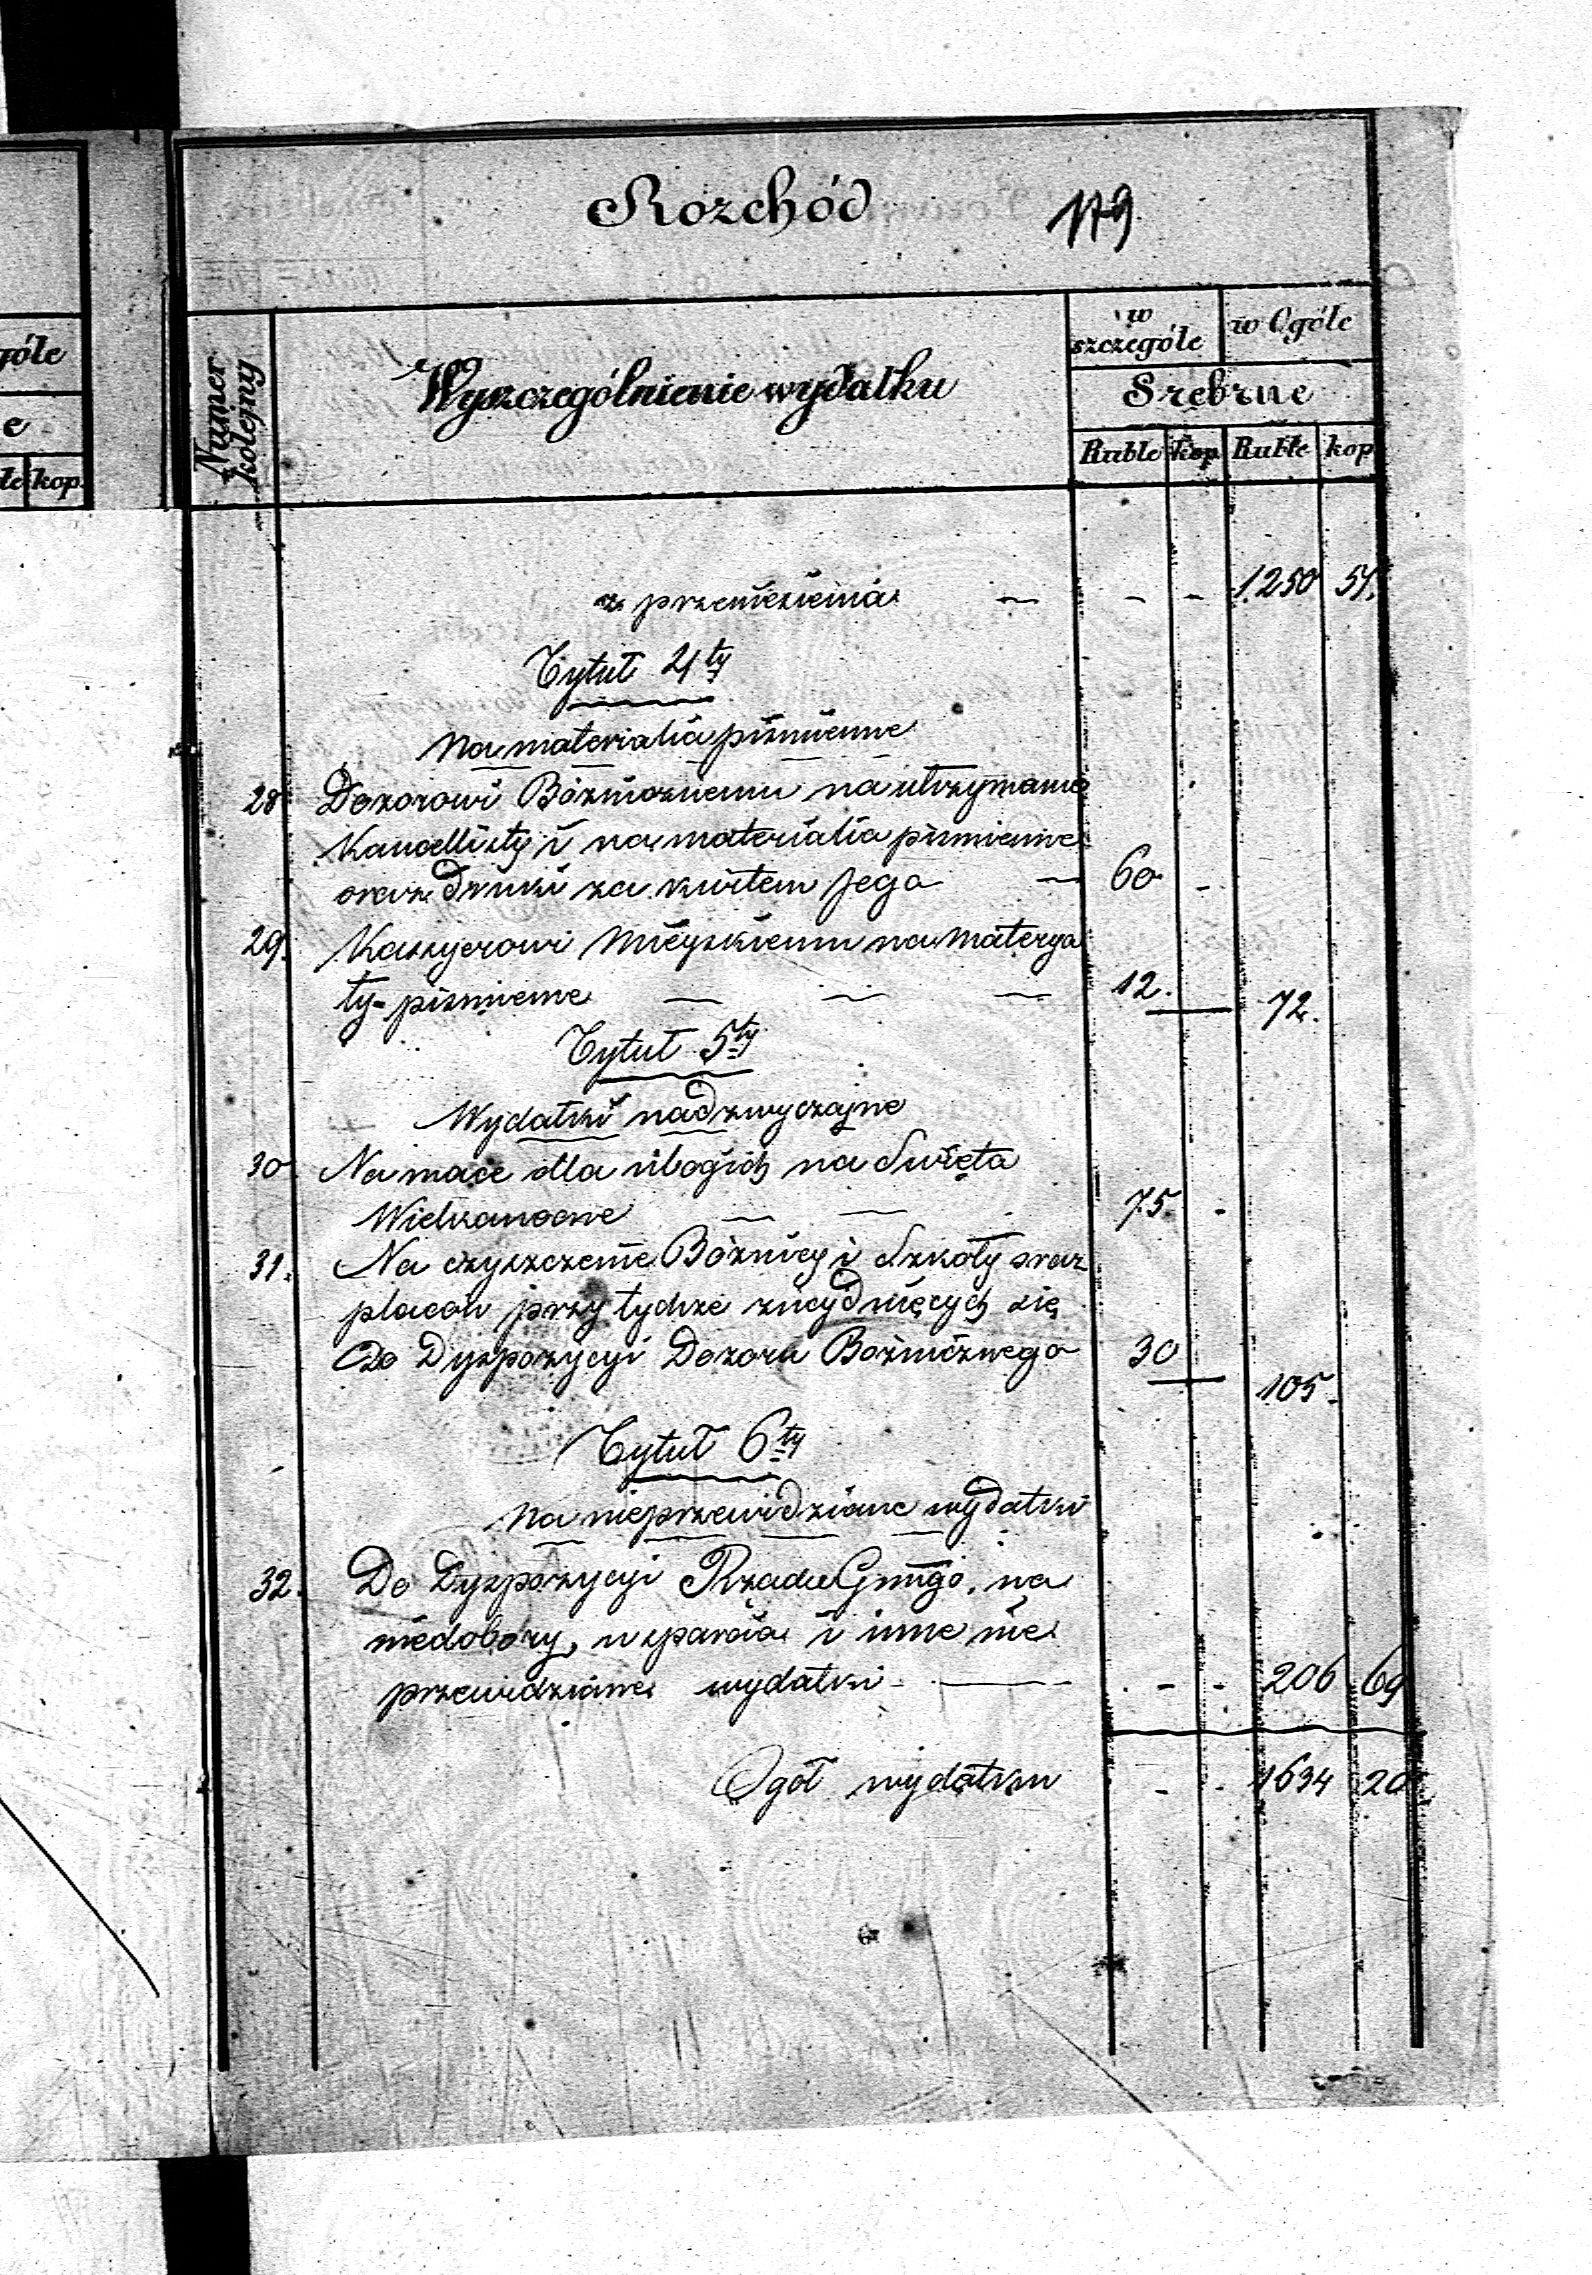 Rozchód 179
góle
e
le kop.
Numer kolejny
Wyszczególnienie wydatku
w szczególe
w Ogóle
Srebrne
Ruble kop. Ruble kop.
z przeniesienia — - - 1250 51.
Tytuł 4ty
Na materialia piśmienne
28 Dozorowi Bóżnicznemu na utrzymanie
Kancellisty i na materialia piśmienne
oraz druki za kwitem jego — 60 -
29. Kassyerowi Mieyskiemu na Materya
ły piśmienne — — — 12. 72.
Tytuł 5ty
Wydatki nadzwyczajne
30 Na mace dla ubogich na Święta
Wielkanocne — — 75 -
31. Na czyszczenie Bóżnicy i Szkoły oraz
placów przy tychże znaydujęcych się
Do Dyspozycyi Dozoru Bóżnicznego 30 105.
Tytuł 6ty
Na nieprzewidziane wydatki
32. Do Dyspozycyi Rządu Gnngo. na
niedobory, wsparcia i inne nie
przewidziane wydatki — - - 206 69
Ogół wydatku - - 1634 20